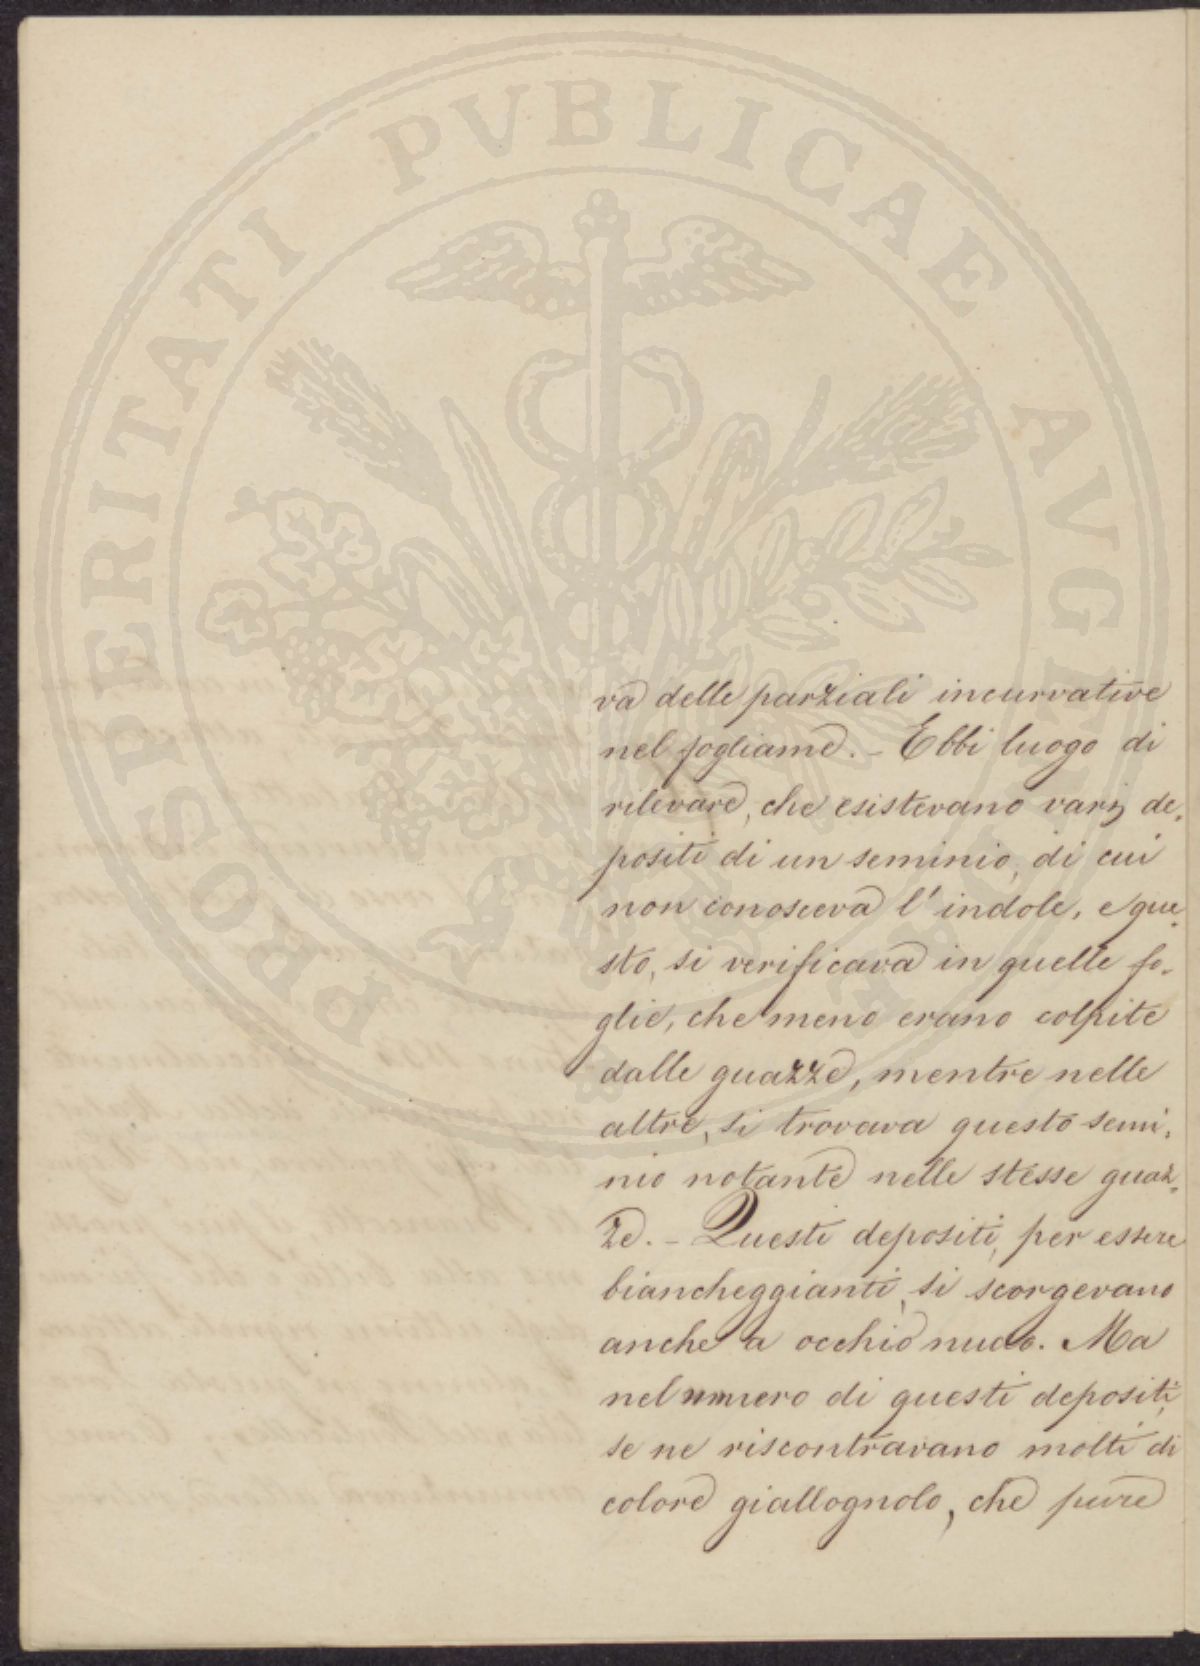 PROSPERITATI PVBLICAE AVGENDAE
va delle parziali incurvative
nel fogliame. - Ebbi luogo di
rilevare, che esistevano varj de-
positi di un seminio, di cui
non conosceva l'indole, e que-
sto, si verificava in quelle fo-
glie, che meno erano colpite
dalle guazze, mentre nelle
altre, si trovava questo semi-
nio notante nelle stesse guaz-
ze. - Questi depositi, per essere
biancheggianti, si scorgevano
anche a occhio nudo. Ma
nel numero di questi depositi,
se ne riscontravano molti di
colore giallognolo, che pure